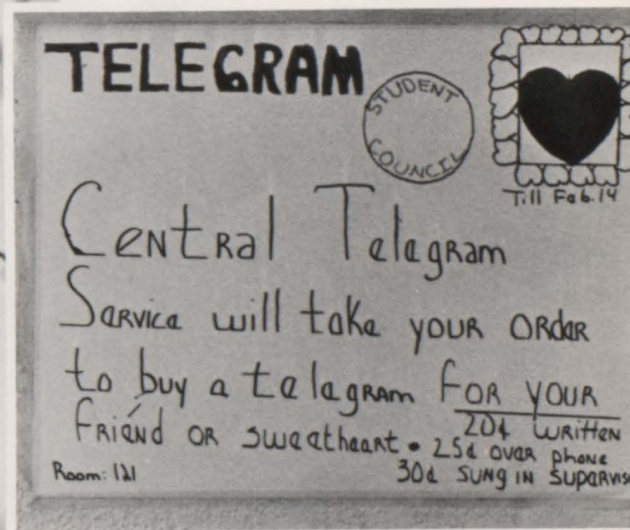 TELEGRAM
STUDENT
COUNCIL
Till Feb. 14
Central Telegram
Service will take your order
to buy a telegram for your
friend or sweetheart •
20¢ written
25¢ over phone
30¢ sung in supervis
Room: 121